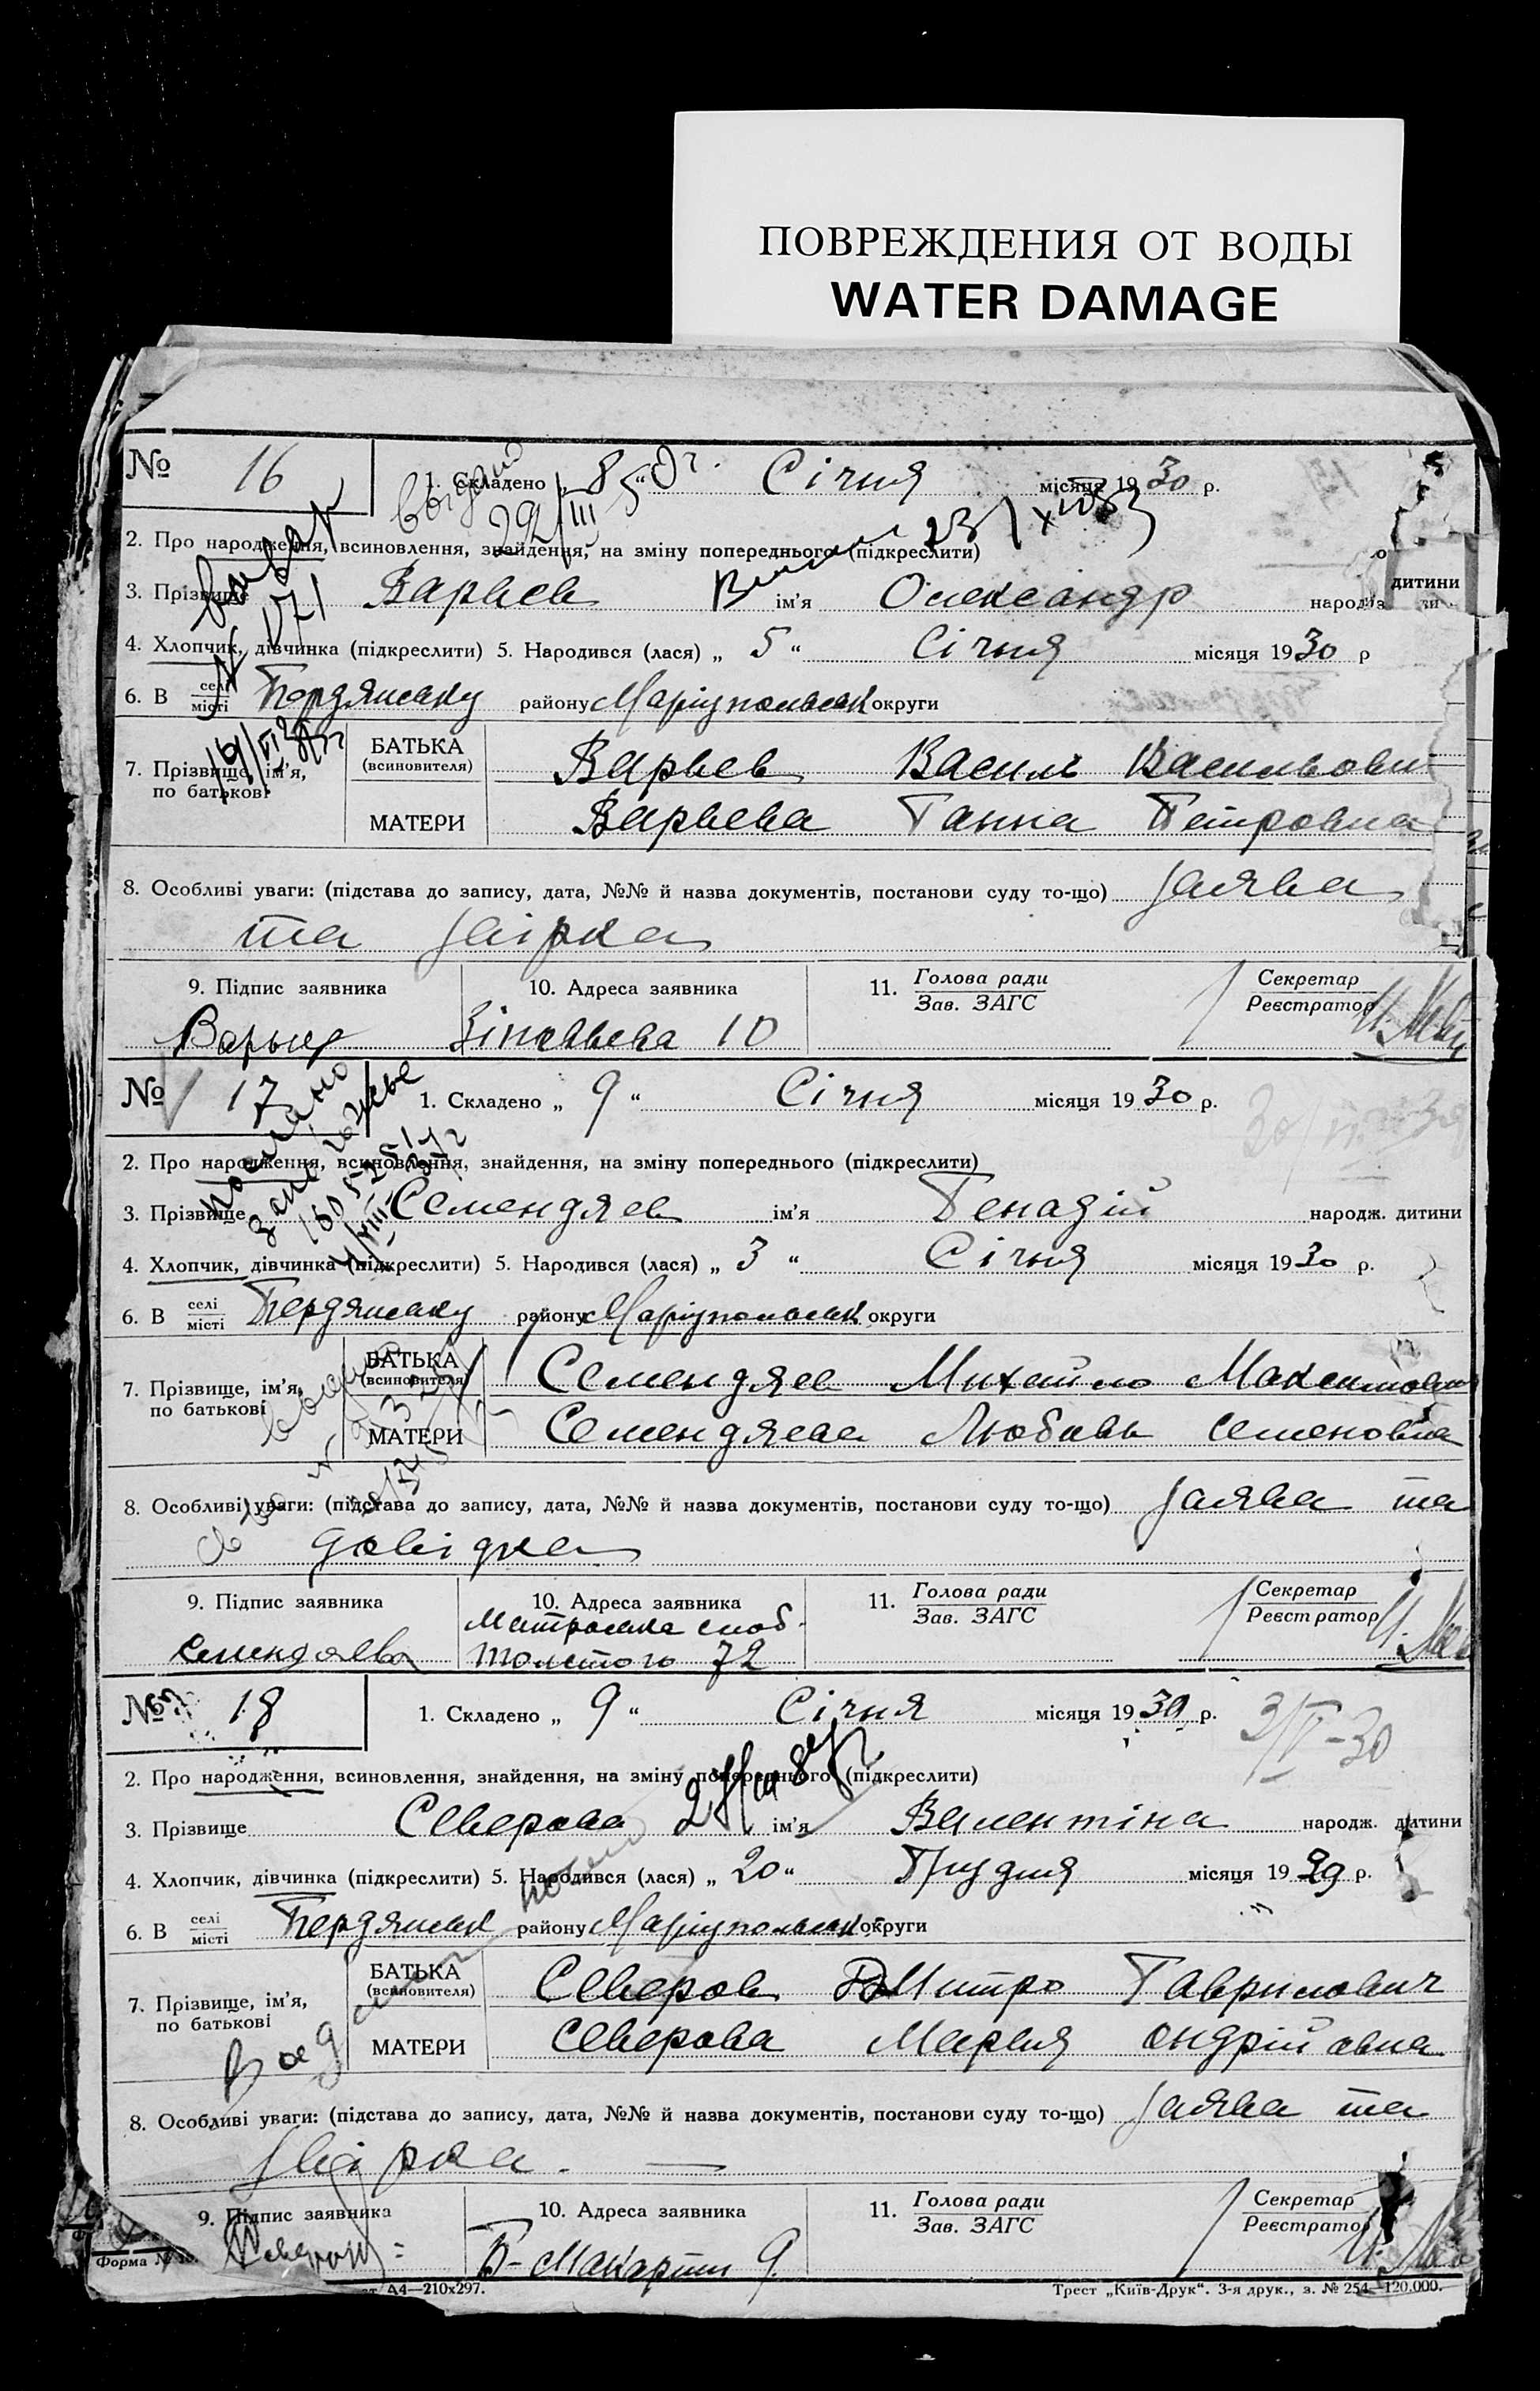 ПОВРЕЖДЕНИЯ ОТ ВОДЫ
WATER DAMAGE
№ 16
1. Складено „ 8 “ Січня місяця 1930 р.
2. Про народження, всиновлення, знайдення, на зміну попереднього (підкреслити)
3. Прізвище Варьев ім'я Олександр народж. дитини
4. Хлопчик, дівчинка (підкреслити) 5. Народився (лася) „ 5 “ Січня місяця 1930 р
6. В селі місті Бердянську району Маріупольськ округи
7. Прізвище, ім'я, по батькові
БАТЬКА (всиновителя) Варьев Василь Васильови
МАТЕРИ Варьева Ганна Петровна
8. Особливі уваги: (підстава до запису, дата, №№ й назва документів, постанови суду то-що) Заява
та
9. Підпис заявника 10. Адреса заявника 11. Голова ради Зав. ЗАГС Секретар Реєстратор
Варьев Зіновьева 10
№ 17
1. Складено „ 9 “ Січня місяця 1930 р.
2. Про народження, всиновлення, знайдення, на зміну попереднього (підкреслити)
3. Прізвище Семендяев ім'я Генадій народж. дитини
4. Хлопчик, дівчинка (підкреслити) 5. Народився (лася) „ 3 “ Січня місяця 1930 р.
6. В селі місті Бердянську району Маріупольськ округи
7. Прізвище, ім'я, по батькові
БАТЬКА (всиновителя) Семендяев Михайло Максимович
МАТЕРИ Семендяева Любовь Семеновна
8. Особливі уваги: (підстава до запису, дата, №№ й назва документів, постанови суду то-що) Заява та
довідка
9. Підпис заявника 10. Адреса заявника 11. Голова ради Зав. ЗАГС Секретар Реєстратор
Матроська слоб.
Семендяева Толстого 72
№ 18
1. Складено „ 9 “ Січня місяця 1930 р.
3/V-30
2. Про народження, всиновлення, знайдення, на зміну попереднього (підкреслити)
3. Прізвище Северова ім'я Валентіна народж. дитини
4. Хлопчик, дівчинка (підкреслити) 5. Народився (лася) „ 20 “ Грудня місяця 1929 р.
6. В селі місті Бердянськ району Маріупольськ округи
7. Прізвище, ім'я, по батькові
БАТЬКА (всиновителя) Северов Дмитро Гаврилович
МАТЕРИ Северова Мария Ондрійовна
8. Особливі уваги: (підстава до запису, дата, №№ й назва документів, постанови суду то-що) Заява та
9. Підпис заявника 10. Адреса заявника 11. Голова ради Зав. ЗАГС Секретар Реєстратор
9
Форма №
А4—210х297.
Трест „Київ-Друк“. 3-я друк., з. № 254—120.000.